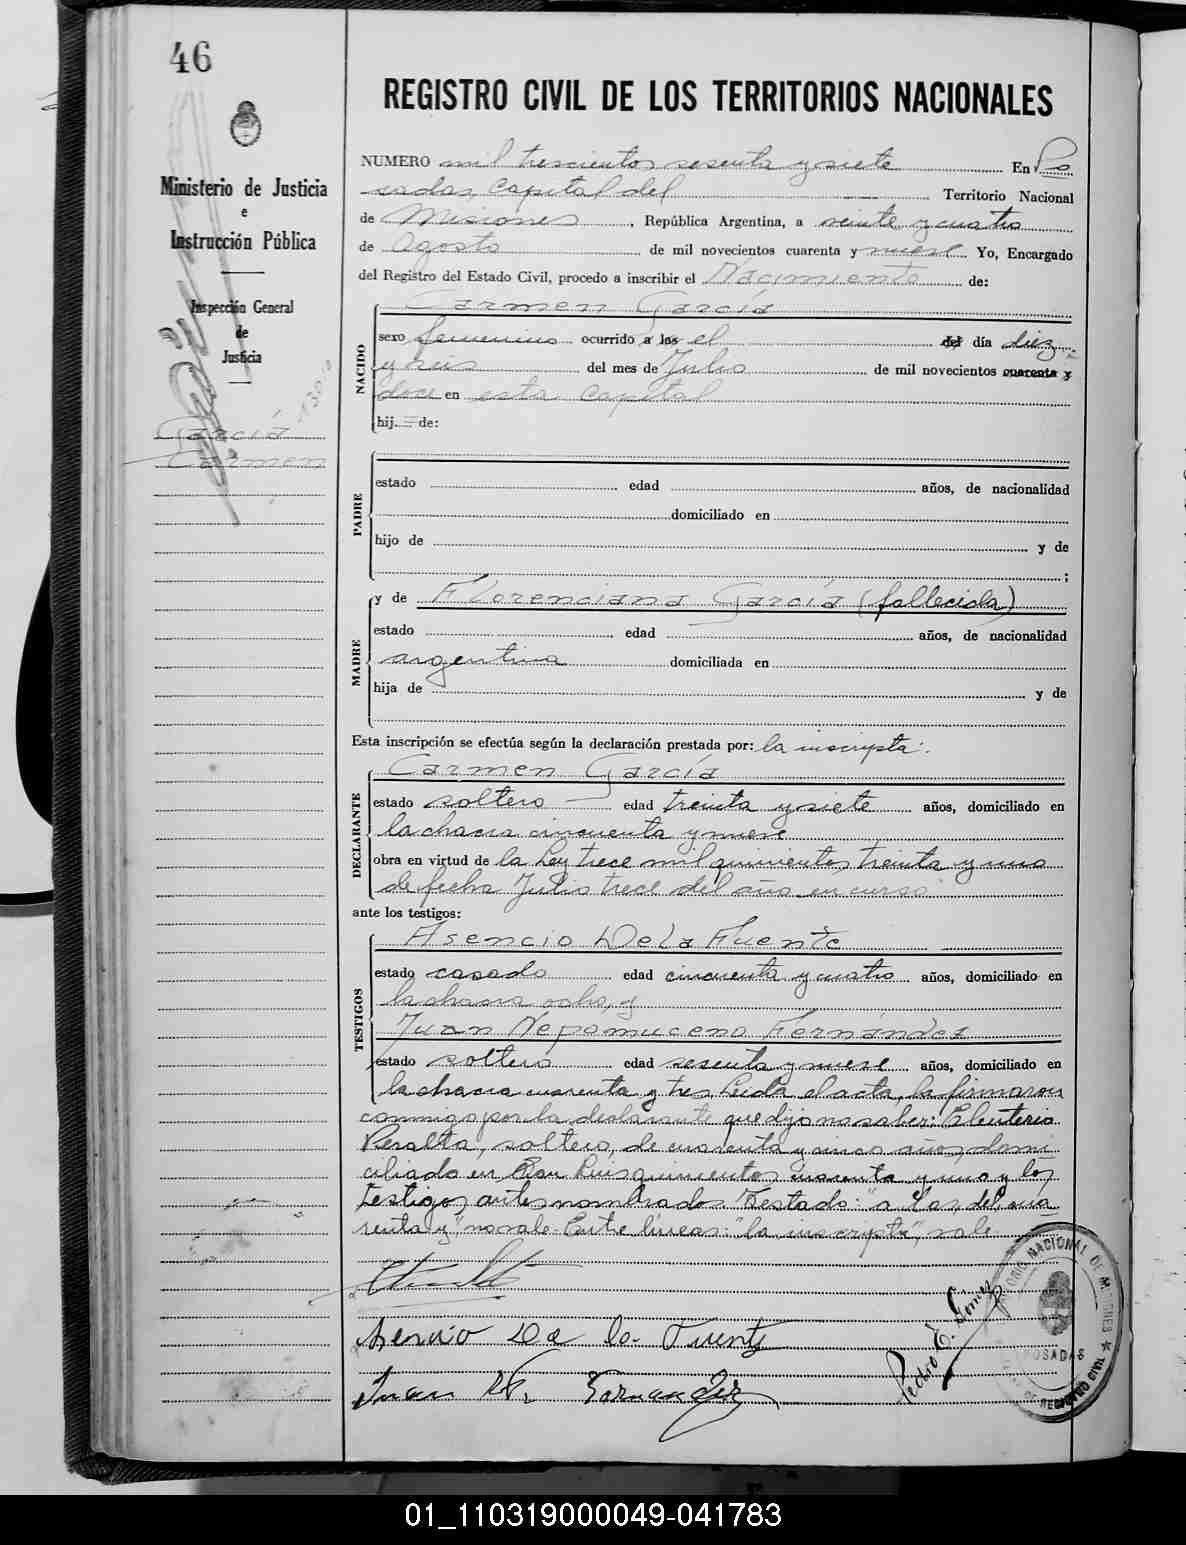 46
REGISTRO CIVIL DE LOS TERRITORIOS NACIONALES
Ministerio de Justicia
e
Instrucción Pública
Inspección General
de
Justicia
García
Carmen
NUMERO mil trescientos sesenta y siete En Po
sadas, capital del Territorio Nacional
de Misiones, República Argentina, a veinte y cuatro
de Agosto de mil novecientos cuarenta y nueve Yo, Encargado
del Registro del Estado Civil, procedo a inscribir el Nacimiento de:
NACIDO
Carmen García
sexo femenino ocurrido a las el del día diez
y seis del mes de Julio de mil novecientos cuarenta y
doce en esta capital
hij de:
PADRE
estado edad años, de nacionalidad
domiciliado en
hijo de y de
;
MADRE
y de Florenciana García (fallecida)
estado edad años, de nacionalidad
argentina domiciliada en
hija de y de
Esta inscripción se efectúa según la declaración prestada por: la inscripta:
DECLARANTE
Carmen García
estado soltero edad treinta y siete años, domiciliado en
la chacra cincuenta y nueve
obra en virtud de la Ley trece mil quinientos treinta y uno
de fecha Julio trece del año en curso
ante los testigos:
TESTIGOS
Asencio De la Fuente
estado casado edad cincuenta y cuatro años, domiciliado en
la chacra ocho, y
Juan Nepomuceno Fernández
estado soltero edad sesenta y nueve años, domiciliado en
la chacra cuarenta y tres Leida el acta, la firmaron
conmigo por la declarante que dijo no saber: Eleuterio
Peralta, soltero, de cuarenta y cinco años, domi
ciliado en San Luis quinientos cuarenta y uno y los
testigos antes nombrados. Testado: "a las, del, cua
renta y" no vale. Entre lineas: "la inscripta", vale
Asencio De la Fuente
Juan N. Fernandez
Pedro E. Gómez
TERRITORIO NACIONAL DE MISIONES
POSADAS
REGISTRO CIVIL
01_110319000049-041783